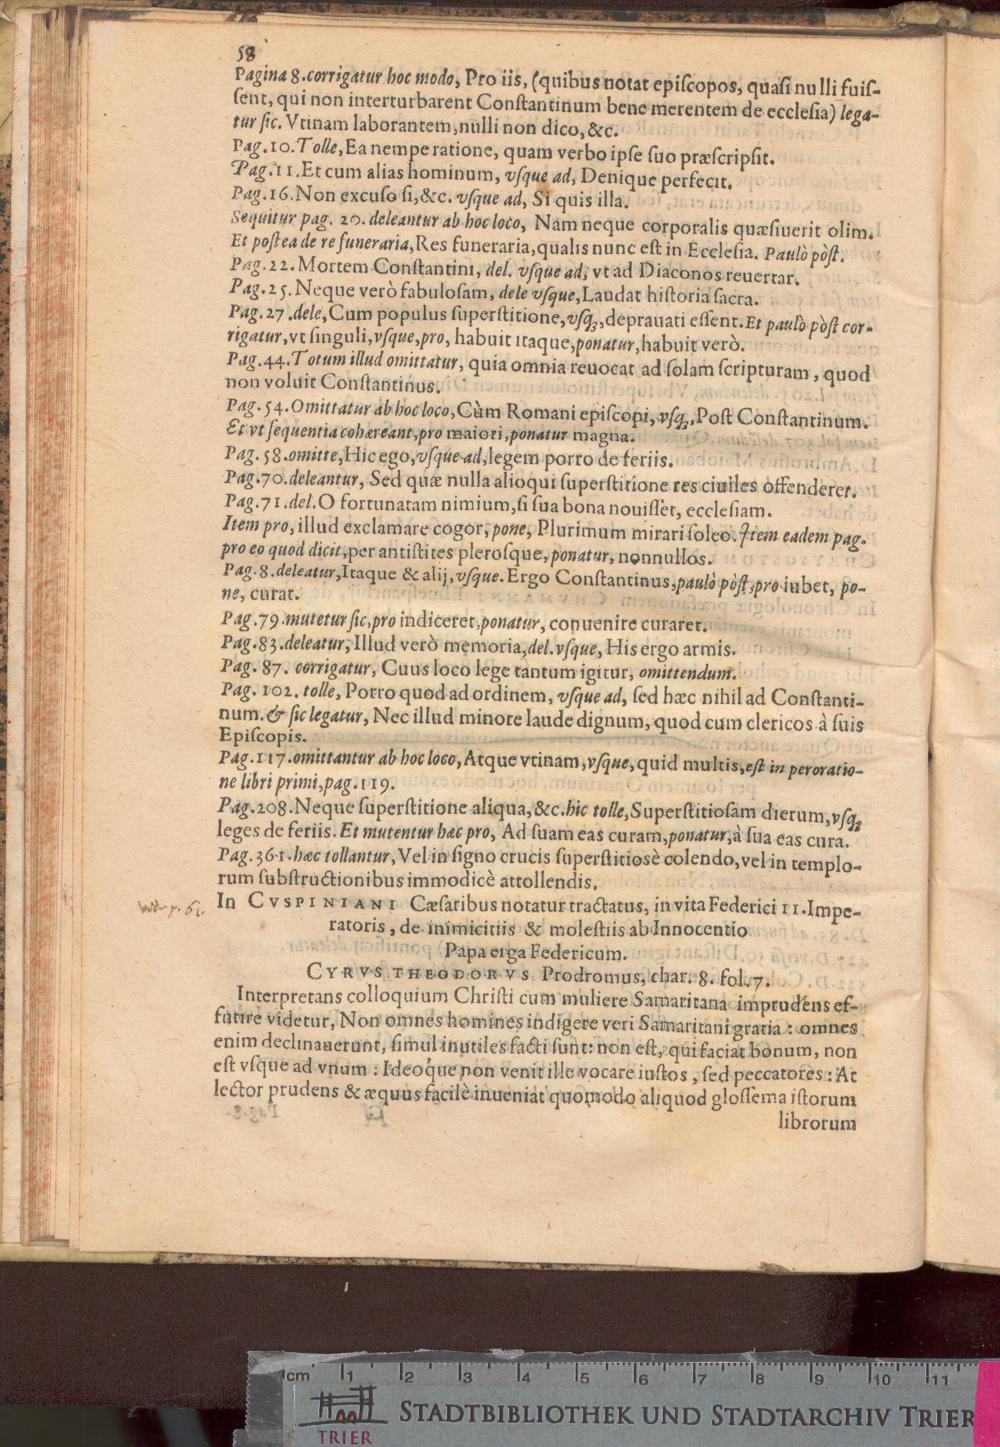 58
Pagina 8. corrigatur hoc modo, Pro iis, (quibus notat epiſcopos, quaſi nulli fuiſ-
ſent, qui non interturbarent Conſtantinum bene merentem de eccleſia) lega-
tur ſic. Vtinam laborantem, nulli non dico, &c.
Pag. 10. Tolle, Ea nempe ratione, quam verbo ipſe ſuo præſcripſit.
Pag. 11. Et cum alias hominum, vſque ad, Denique perfecit.
Pag. 16. Non excuſo ſi, &c. vſque ad, Si quis illa.
Sequitur pag. 20. deleantur ab hoc loco, Nam neque corporalis quæſiuerit olim.
Et poſtea de re funeraria, Res funeraria, qualis nunc eſt in Eccleſia. Paulò pòſt.
Pag. 22. Mortem Conſtantini, del. vſque ad, vt ad Diaconos reuertar.
Pag. 25. Neque verò fabuloſam, dele vſque, Laudat hiſtoria ſacra.
Pag. 27. dele, Cum populus ſuperſtitione, vſq;, deprauati eſſent. Et paulò pòſt cor-
rigatur, vt ſinguli, vſque, pro, habuit itaque, ponatur, habuit verò.
Pag. 44. Totum illud omittatur, quia omnia reuocat ad ſolam ſcripturam, quod
non voluit Conſtantinus.
Pag. 54. Omittatur ab hoc loco, Cùm Romani epiſcopi, vſq;, Poſt Conſtantinum.
Et vt ſequentia cohæreant, pro maiori, ponatur magna.
Pag. 58. omitte, Hic ego, vſque ad, legem porro de feriis.
Pag. 70. deleantur, Sed quæ nulla alioqui ſuperſtitione res ciuiles offenderet.
Pag. 71. del. O fortunatam nimium, ſi ſua bona nouiſſet, eccleſiam.
Item pro, illud exclamare cogor, pone, Plurimum mirari ſoleo. Item eadem pag.
pro eo quod dicit, per antiſtites pleroſque, ponatur, nonnullos.
Pag. 8. deleatur, Itaque & alij, vſque. Ergo Conſtantinus, paulò pòſt, pro iubet, po-
ne, curat.
Pag. 79. mutetur ſic, pro indiceret, ponatur, conuenire curaret.
Pag. 83. deleatur, Illud verò memoria, del. vſque, His ergo armis.
Pag. 87. corrigatur, Cuus loco lege tantum igitur, omittendum.
Pag. 102. tolle, Porro quod ad ordinem, vſque ad, ſed hæc nihil ad Conſtanti-
num. & ſic legatur, Nec illud minore laude dignum, quod cum clericos à ſuis
Epiſcopis.
Pag. 117. omittantur ab hoc loco, Atque vtinam, vſque, quid multis, eſt in peroratio-
ne libri primi, pag. 119.
Pag. 208. Neque ſuperſtitione aliqua, &c. hic tolle, Superſtitioſam dierum, vſq;
leges de feriis. Et mutentur hæc pro, Ad ſuam eas curam, ponatur, à ſua eas cura.
Pag. 361. hæc tollantur, Vel in ſigno crucis ſuperſtitiosè colendo, vel in templo-
rum ſubſtructionibus immodicè attollendis.
In CVSPINIANI Cæſaribus notatur tractatus, in vita Federici II. Impe-
ratoris, de inimicitiis & moleſtiis ab Innocentio
Papa erga Federicum.
CYRVS THEODORVS Prodromus, char. 8. fol. 7.
Interpretans colloquium Chriſti cum muliere Samaritana imprudens ef-
futire videtur, Non omnes homines indigere veri Samaritani gratia: omnes
enim declinauerunt, ſimul inutiles facti ſunt: non eſt, qui faciat bonum, non
eſt vſque ad vnum: Ideoq́ue non venit ille vocare iuſtos, ſed peccatores: At
lector prudens & æquus facilè inueniat quomodo aliquod gloſſema iſtorum
librorum
cm 1 2 3 4 5 6 7 8 9 10 11
TRIER
STADTBIBLIOTHEK UND STADTARCHIV TRIER